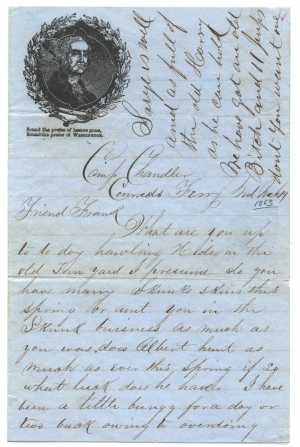 Sound the praise of heroes gone,
Sound the praise of WASHINGTON.
Sarge is well
and as full of
the old Harry
as he can hold
We have got an old
Bitch and 11 pups
dont you want one
Camp Chandler
Conrads Ferry Md
1863
Friend Frank
What are you up
to to day hawling Hides in the
old Tan yard I presume do you
have many Skunks skins this
spring or aint you in the
Skunk business as much as
you was. does Albert hunt as
much as ever this spring if so
what luck does he have. I have
been a little bungy for a day or
two back owing to overdoing